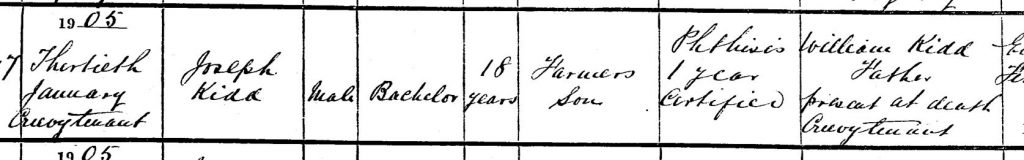 1905
7
Thirtieth
January
Creevytenant
Joseph
Kidd
Male
Bachelor
18
years
Farmers
Son
Phthisis
1 year
Certified
William Kidd
Father
present at death
Creevytenant
1905